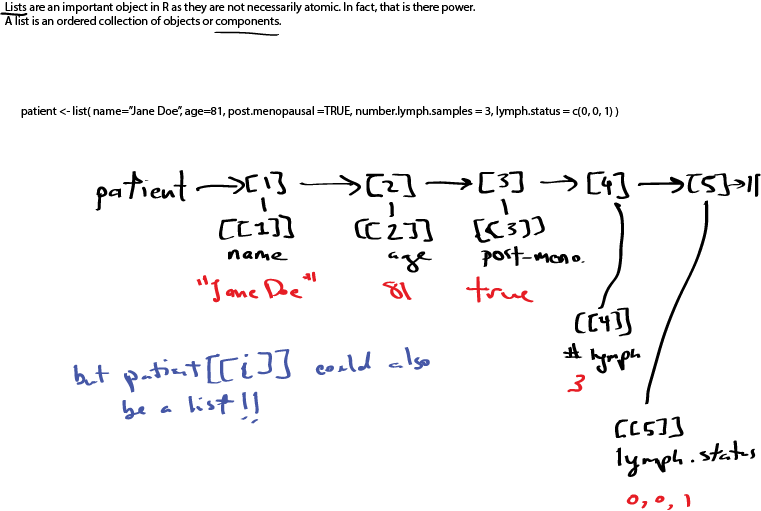 Lists are an important object in R as they are not necessarily atomic. In fact, that is there power.
A list is an ordered collection of objects or components.
patient <- list( name="Jane Doe", age=81, post.menopausal =TRUE, number.lymph.samples = 3, lymph.status = c(0, 0, 1) )
patient → [1] → [2] → [3] → [4] → [5] → ||
[[1]] [[2]] [[3]]
name age post-meno.
"Jane Doe" 81 true
[[4]]
# lymph
3
but patient[[i]] could also
be a list!!
[[5]]
lymph.status
0, 0, 1